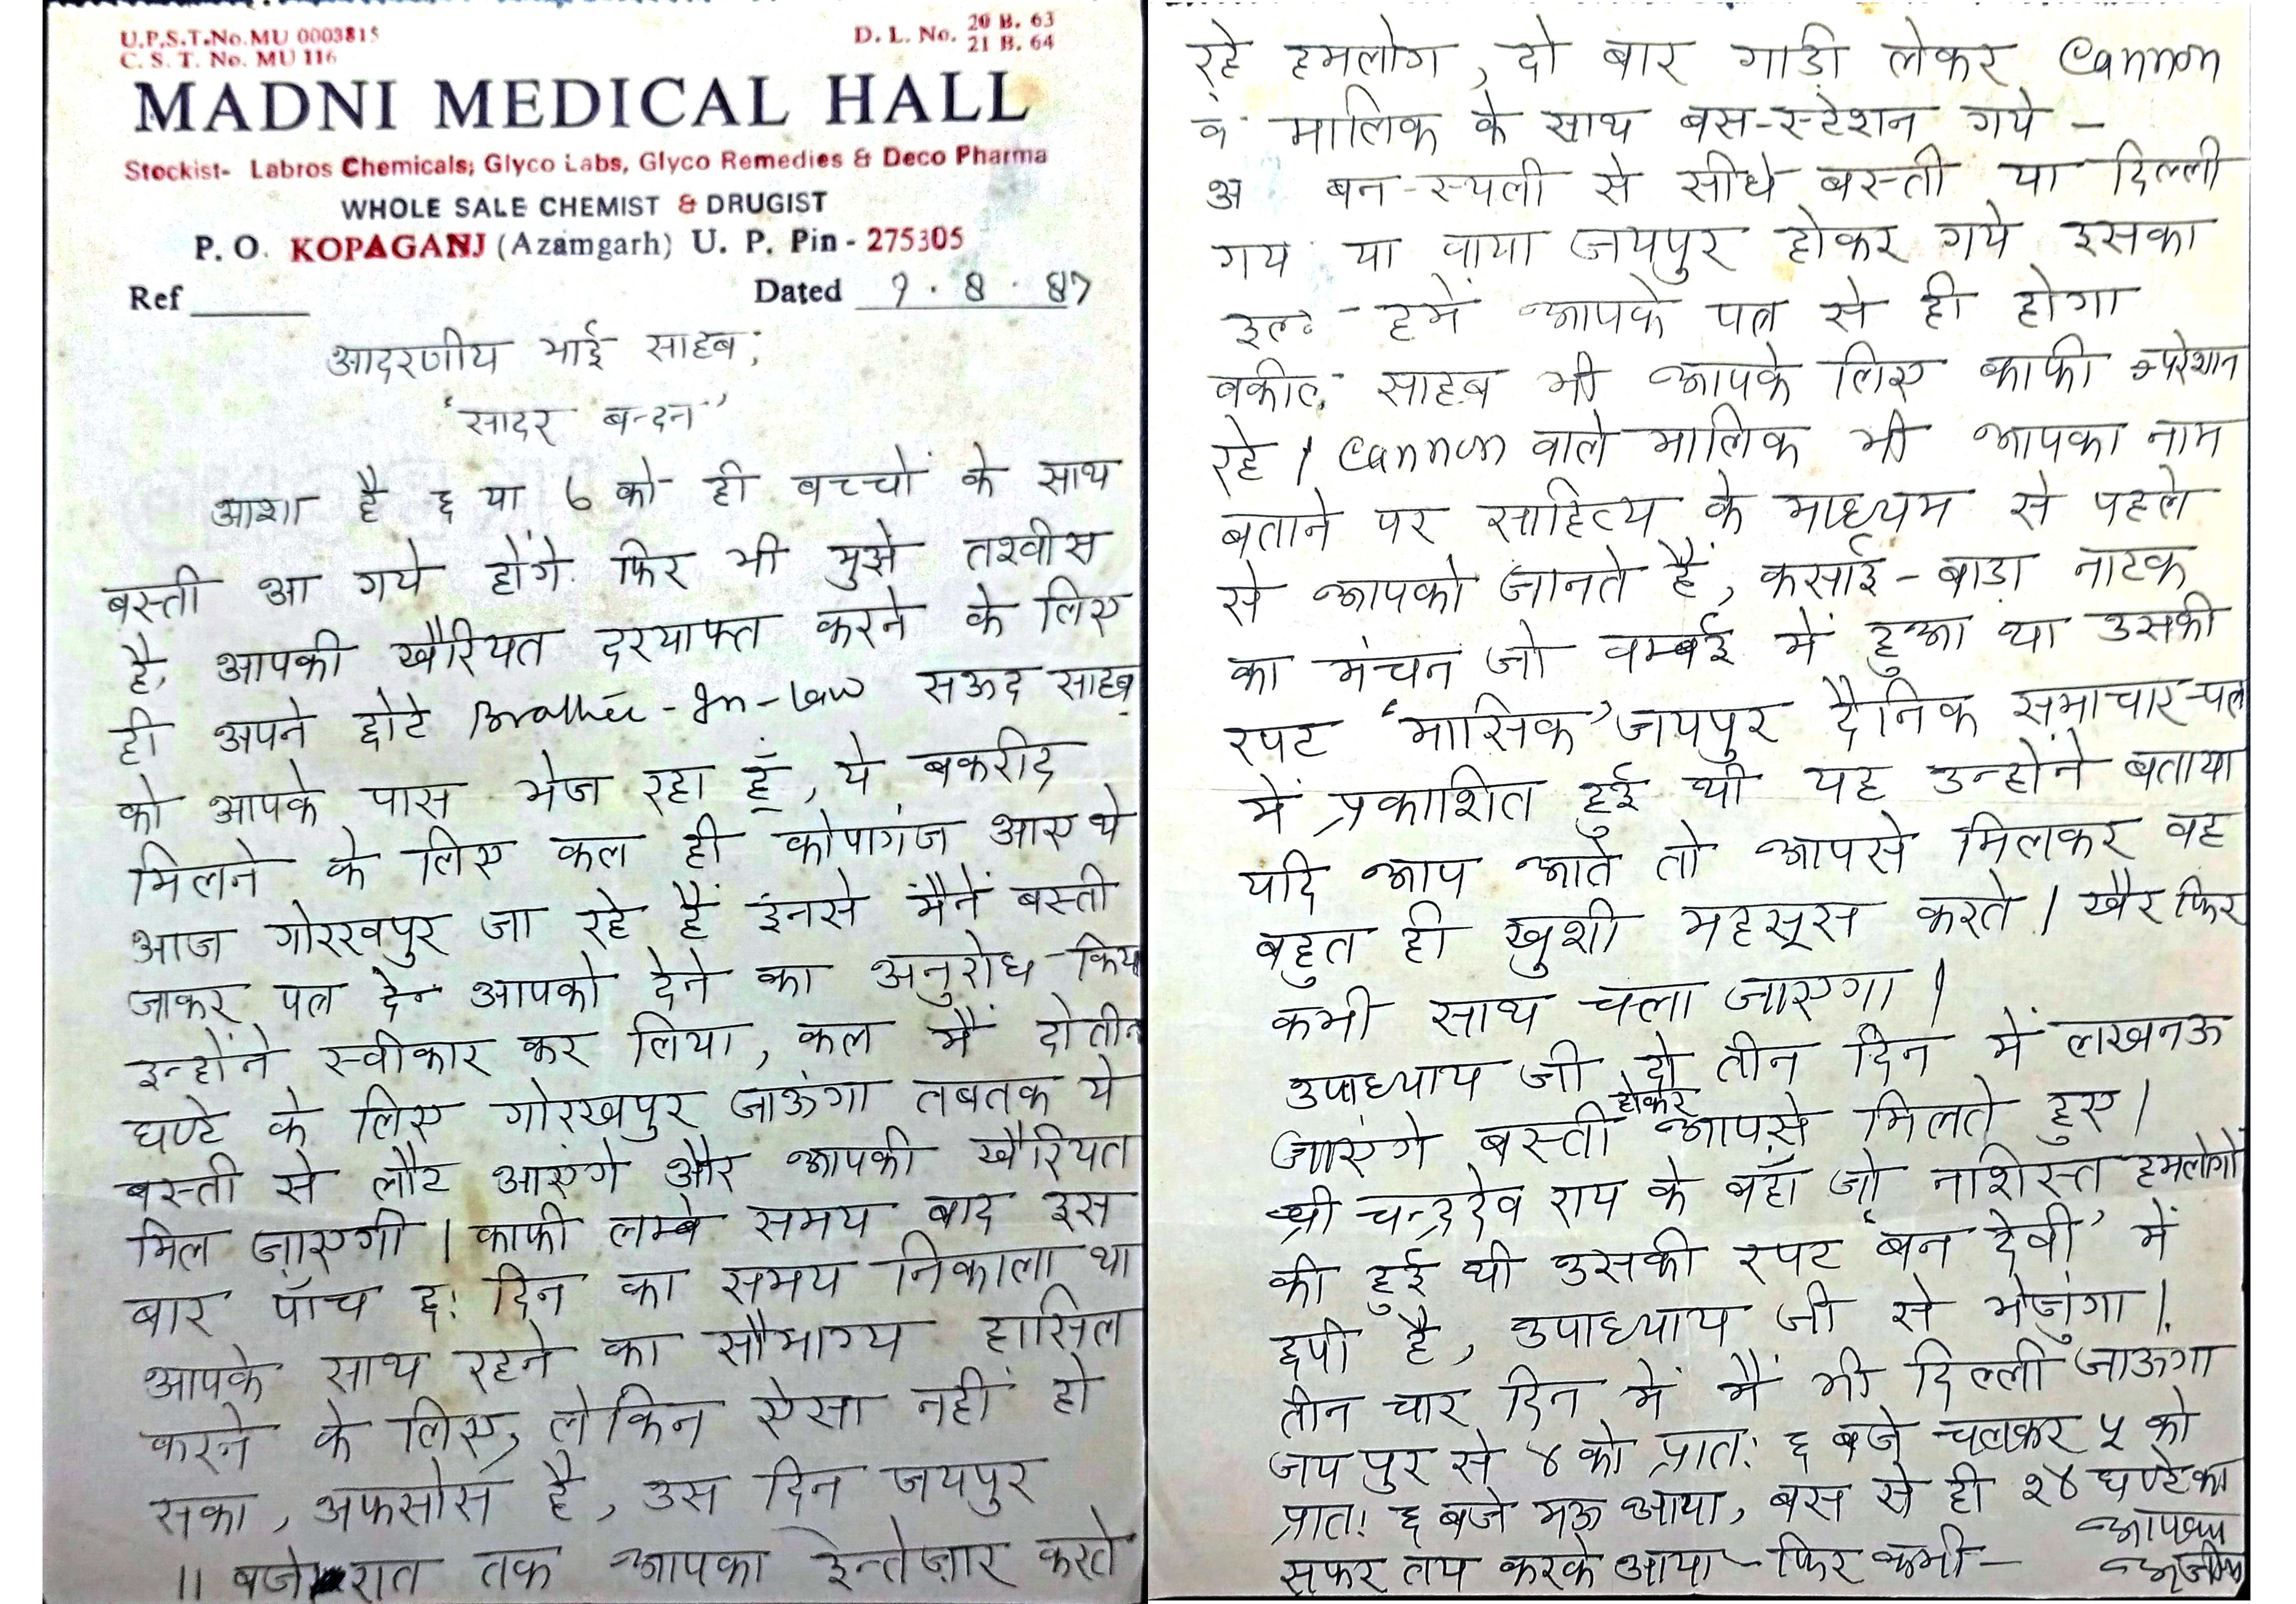 U.P.S.T.No.MU 0003815
C. S. T. No. MU 116
D. L. No. 20 B. 63
21 B. 64
MADNI MEDICAL HALL
Stockist- Labros Chemicals; Glyco Labs, Glyco Remedies & Deco Pharma
WHOLE SALE CHEMIST & DRUGIST
P. O. KOPAGANJ (Azamgarh) U. P. Pin - 275305
Ref
Dated 9 . 8 . 87
आदरणीय भाई साहब,
'सादर बन्दन'
आशा है ६ या ७ को ही बच्चों के साथ
बस्ती आ गये होंगे. फिर भी मुझे तश्वीस
है, आपकी खैरियत दरयाफ्त करने के लिए
ही अपने छोटे Brother-In-Law सऊद साहब
को आपके पास भेज रहा हूँ, ये बकरीद
मिलने के लिए कल ही कोपागंज आए थे
आज गोरखपुर जा रहे हैं इनसे मैनें बस्ती
जाकर पत्र आपको देने का अनुरोध किया
इन्होंने स्वीकार कर लिया, कल मैं दो तीन
घण्टे के लिए गोरखपुर जाऊंगा तबतक ये
बस्ती से लौट आएंगे और आपकी खैरियत
मिल जाएगी । काफी लम्बे समय बाद इस
बार पाँच छः दिन का समय निकाला था
आपके साथ रहने का सौभाग्य हासिल
करने के लिए, लेकिन ऐसा नहीं हो
सका, अफसोस है, उस दिन जयपुर
11 बजे रात तक आपका इन्तेज़ार करते
रहे हमलोग, दो बार गाड़ी लेकर Cannon
के मालिक के साथ बस-स्टेशन गये -
बन-स्थली से सीधे बस्ती या दिल्ली
गये या वाया जयपुर होकर गये इसका
हमें आपके पत्र से ही होगा
वकील साहब भी आपके लिए काफी परेशान
रहे । Cannon वाले मालिक भी आपका नाम
बताने पर साहित्य के माध्यम से पहले
से आपको जानते हैं, कसाई-बाड़ा नाटक
का मंचन जो बम्बई में हुआ था उसकी
रपट 'मासिक' जयपुर दैनिक समाचार-पत्र
में प्रकाशित हुई थी यह उन्होंने बताया
यदि आप आते तो आपसे मिलकर वह
बहुत ही खुशी महसूस करते । खैर फिर
कभी साथ चला जाएगा ।
उपाध्याय जी दो तीन दिन में लखनऊ
जाएंगे बस्ती होकर आपसे मिलते हुए ।
श्री चन्द्रदेव राय के वहाँ जो नाशिस्त हमलोगों
की हुई थी उसकी रपट 'बन देवी' में
छपी है, उपाध्याय जी से भेजुंगा ।
तीन चार दिन में मैं भी दिल्ली जाऊंगा
जयपुर से ४ को प्रातः ६ बजे चलकर ५ को
प्रातः ६ बजे मऊ आया, बस से ही २४ घण्टे का
सफर तय करके आया - फिर कभी -
आपका